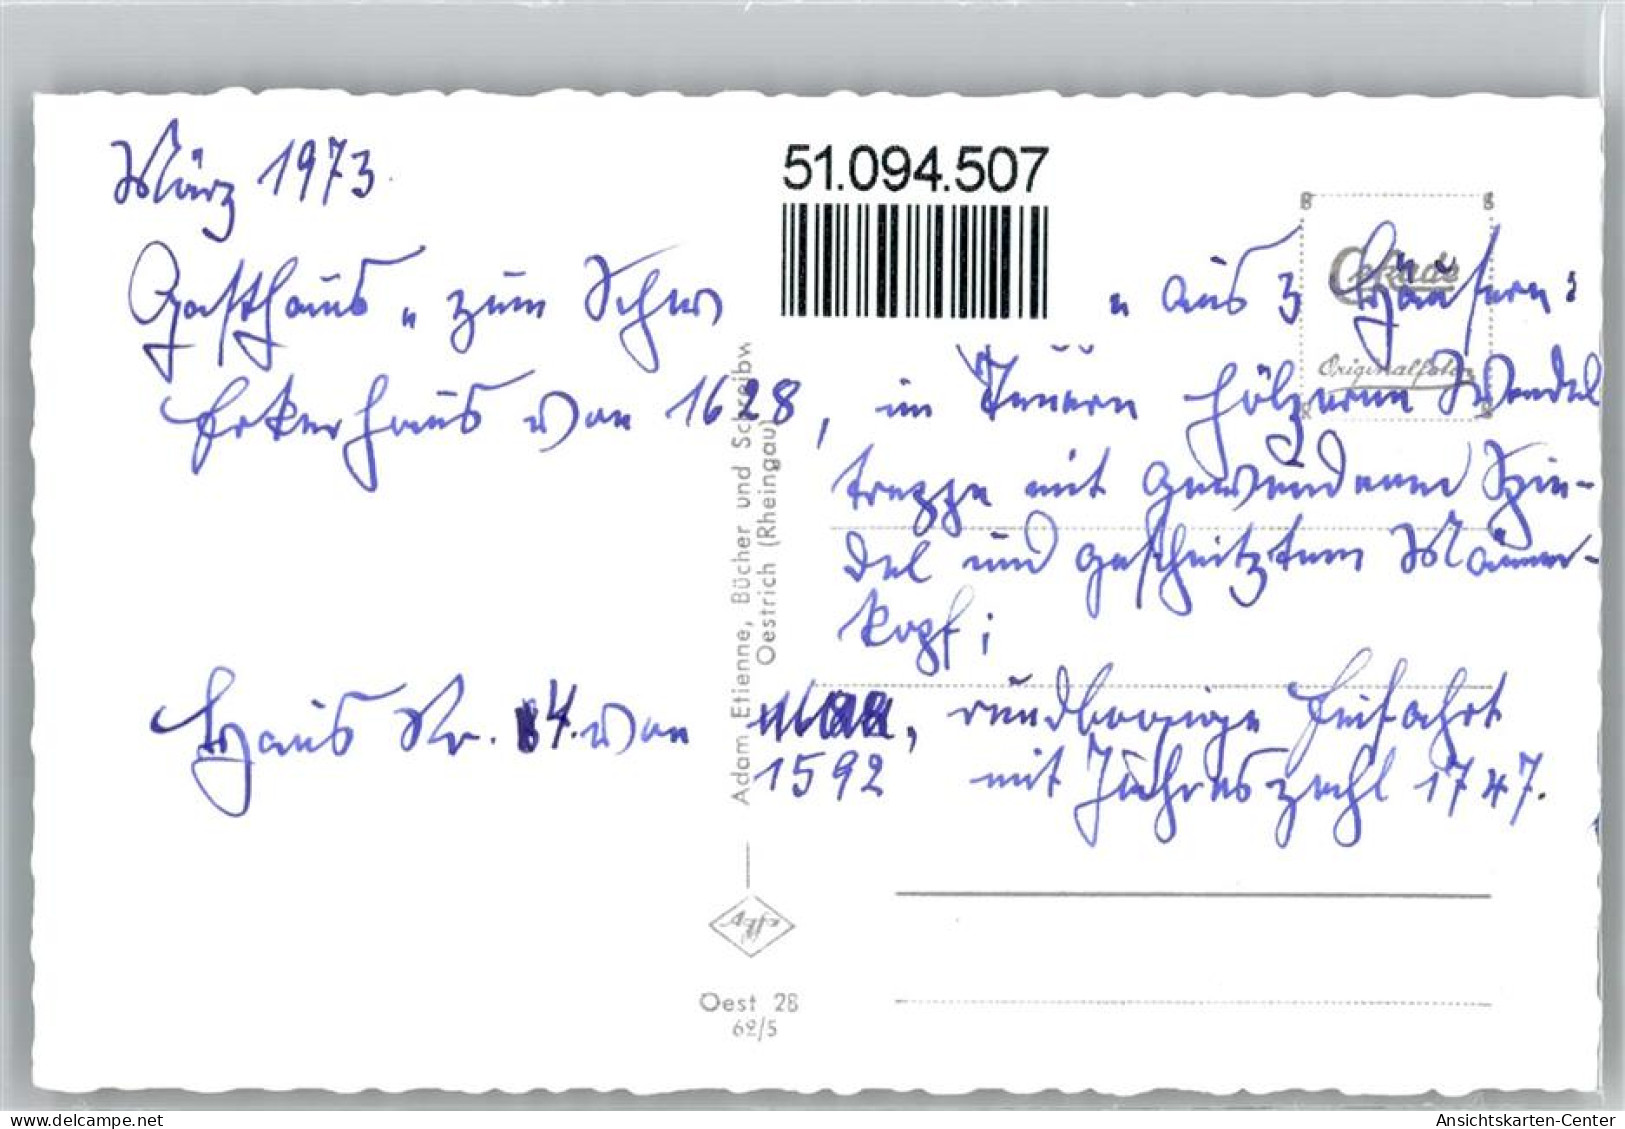 März 1973.
51.094.507
Gasthaus „zum Schw " aus 3 Häusern:
Erkerhaus von 1628, im Innern hölzerne Wendel
treppe mit gewundener Spin-
del und geschnitztem Männer-
kopf;
Haus Nr. 84. von , rundbogige Einfahrt
1592 mit Jahreszahl 1747.
Originalfoto
Adam Etienne, Bücher und Schreibw
Oestrich (Rheingau)
Agfa
Oest 28
62/5
Ansichtskarten-Center